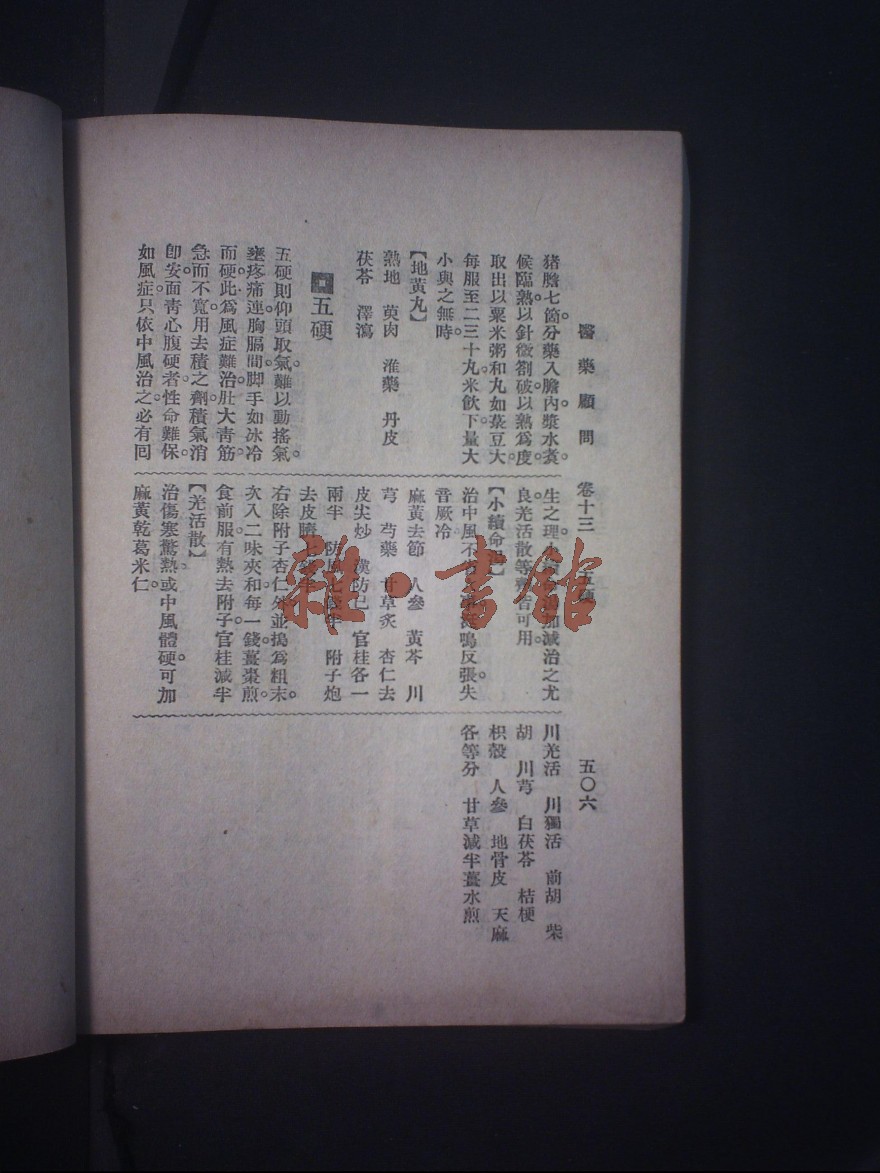 醫藥顧問 卷十三 五硬 五〇六
猪膽七箇。分藥入膽內。漿水煑。
候臨熟以針微劄破。以熟爲度。
取出以粟米粥和丸。如菉豆大。
每服至二三十丸。米飲下。量大
小與之無時。
【地黃丸】
熟地 萸肉 淮藥 丹皮
茯苓 澤瀉
五硬
五硬則仰頭取氣。難以動搖。氣
壅疼痛連胸膈間。脚手如冰冷
而硬。此爲風症難治。肚大靑筋
急而不寬。用去積之劑。積氣消
卽安。面靑心腹硬者。性命難保。
如風症。只依中風治之。必有回
生之理。加減治之。尤
良。羌活散等劑。皆可用。
【小續命湯】
治中風不 鳴。反張。失
音厥冷。
麻黃去節 人參 黃芩 川
芎 芍藥 甘草炙 杏仁去
皮尖炒 漢防己 官桂各一
兩半 防風七錢半 附子炮
去皮臍
右除附子杏仁外。並搗爲粗末。
次入二味夾和。每一錢。薑棗煎。
食前服。有熱去附子。官桂減半。
【羌活散】
治傷寒驚熱。或中風體硬。可加
麻黃乾葛米仁。
川羌活 川獨活 前胡 柴
胡 川芎 白茯苓 桔梗
枳殼 人參 地骨皮 天麻
各等分 甘草減半薑水煎
雜·書館